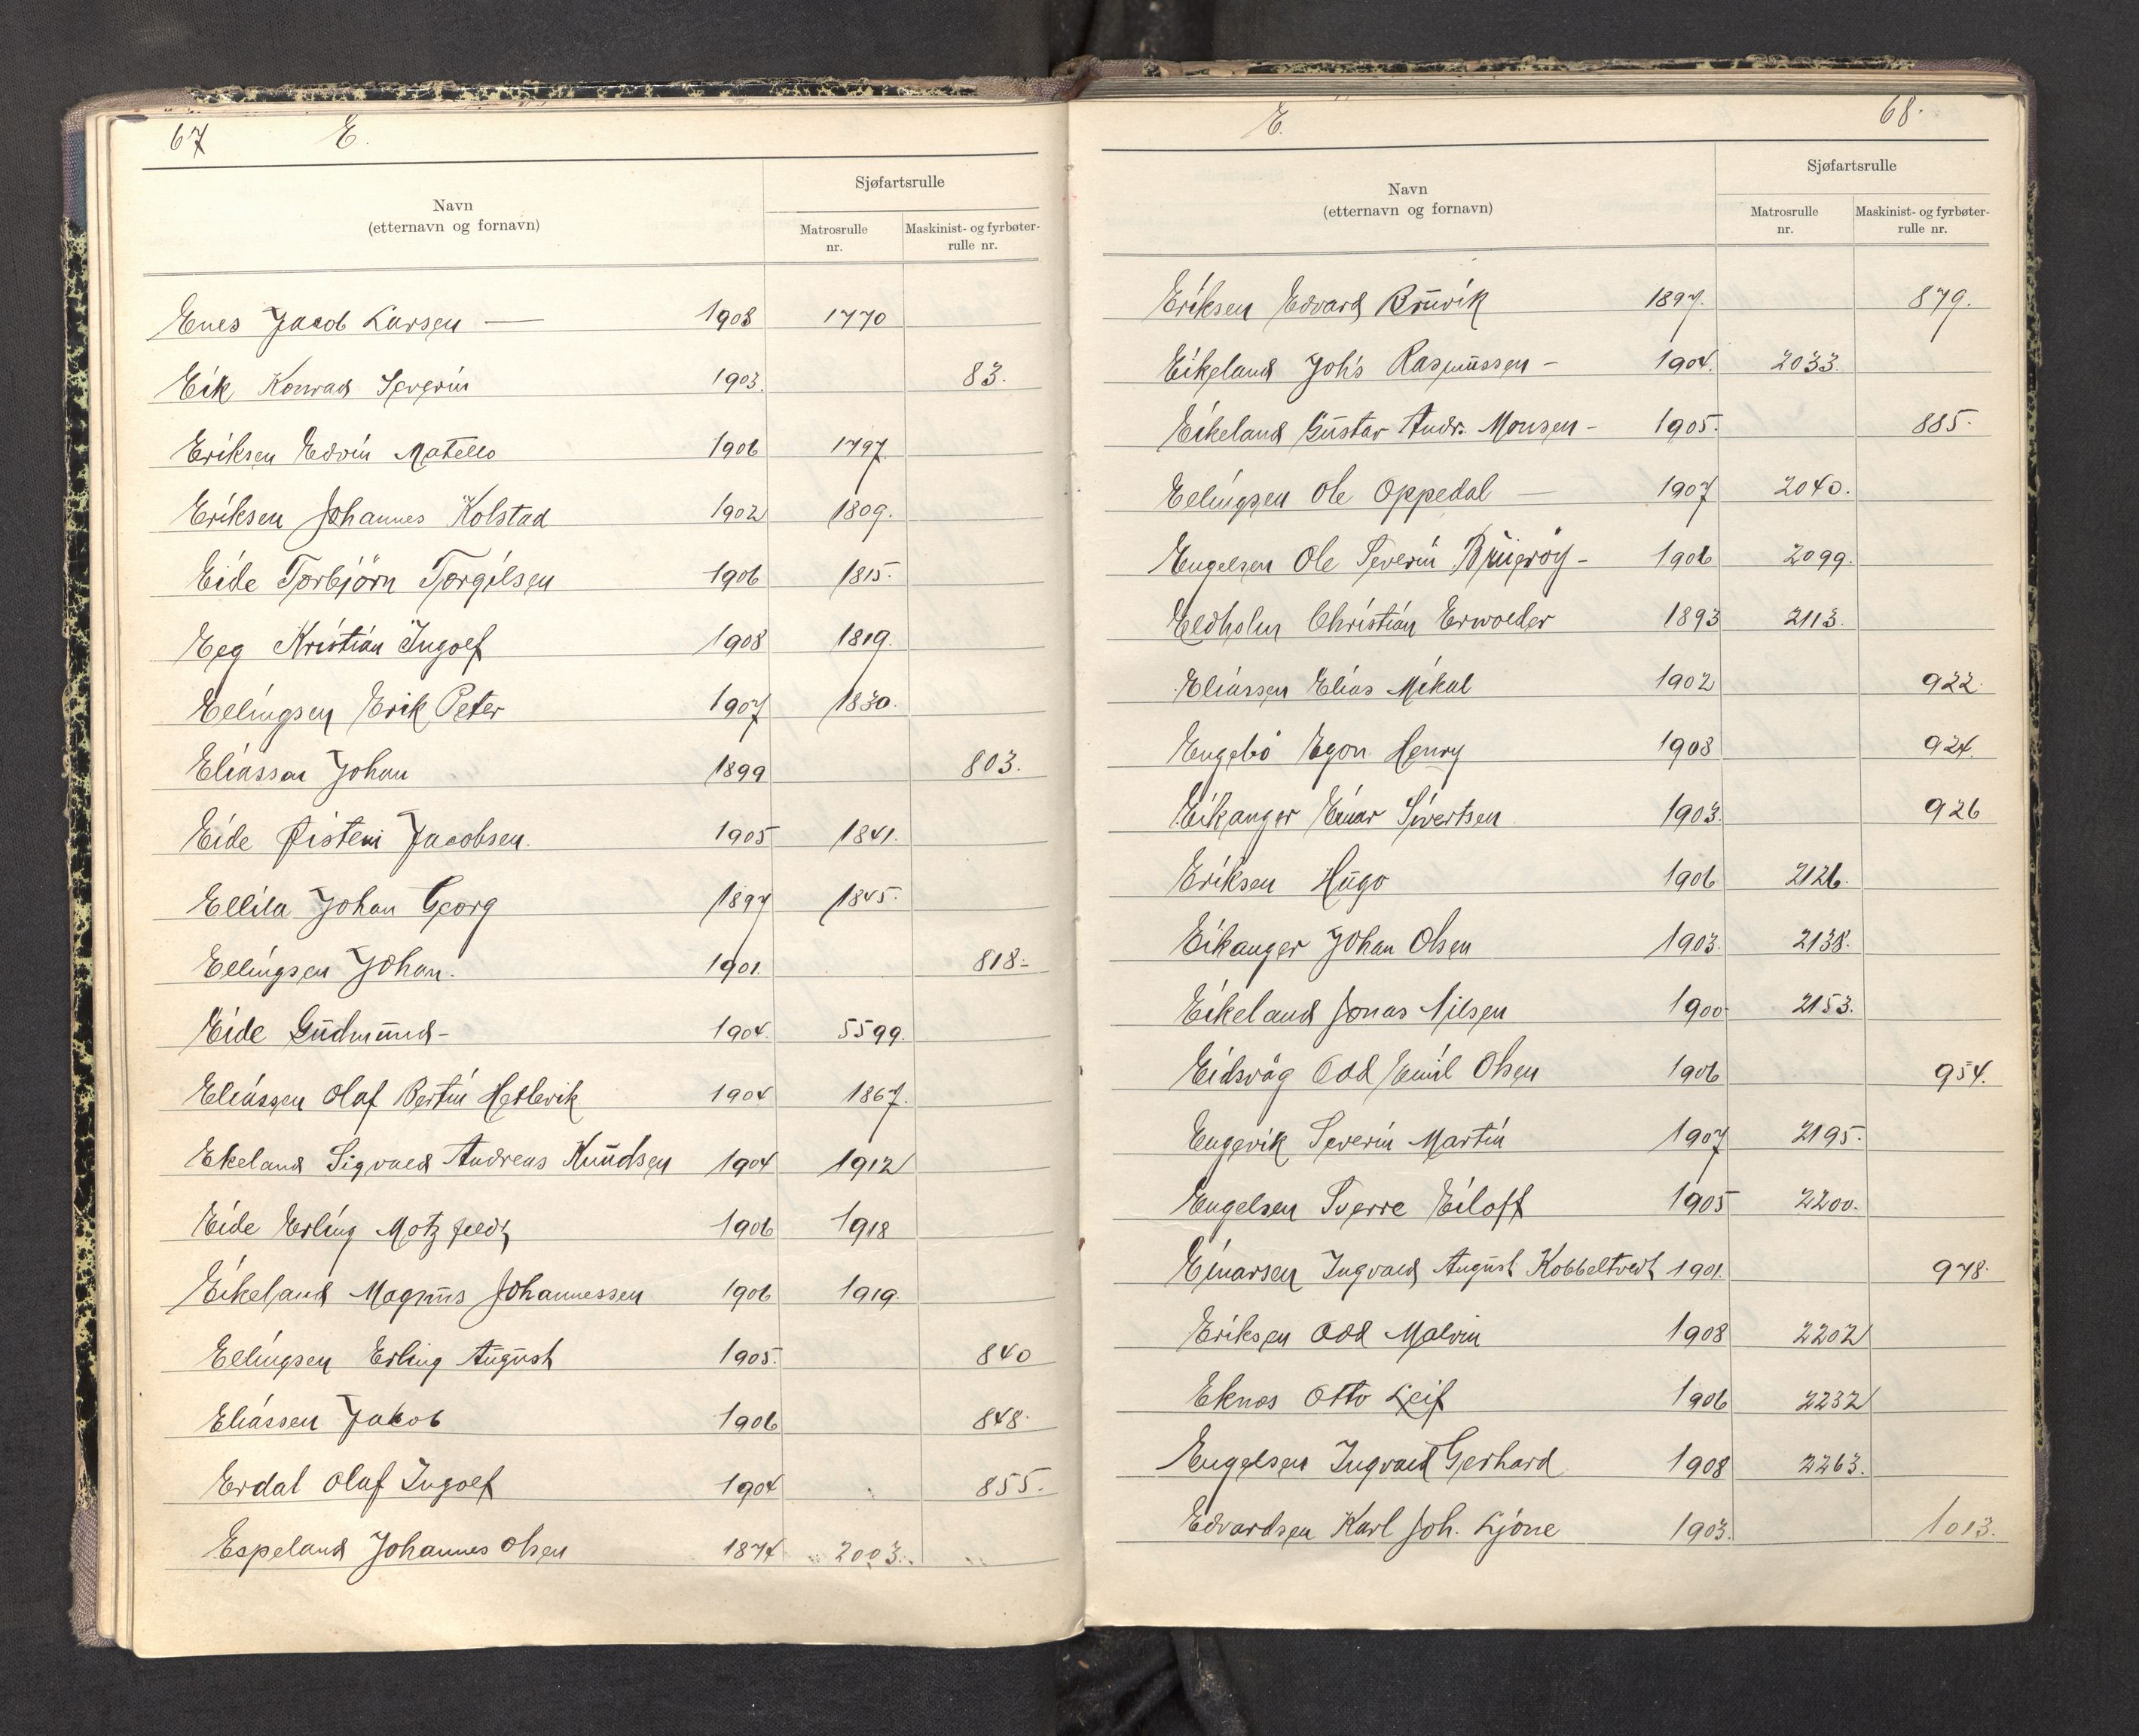 67 E.
Navn
(etternavn og fornavn)
Sjøfartsrulle
Matrosrulle
nr.
Maskinist- og fyrbøter-
rulle nr.
Enes Jacob Larsen — 1908 1770
Eik Konrad Severin 1903. 83.
Eriksen Edvin Matello 1906 1797
Eriksen Johannes Kolstad 1902 1809.
Eide Torbjörn Torgilsen 1906 1815.
Eeg Kristian Ingolf 1908 1819.
Ellingsen Erik Peter 1907 1830.
Eliassen Johan 1899 803.
Eide Øistein Jacobsen. 1905 1841.
Ellila Johan Georg 1897 1845.
Ellingsen Johan. 1901. 818-
Eide Gudmund- 1904. 5599.
Eliassen Olaf Bertin Hetlevik 1904 1867.
Ekeland Sigvald Andreas Knudsen 1904 1912
Eide Erling Motzfeldt 1906 1918
Eikeland Magnus Johannessen 1906 1919.
Ellingsen Erling August 1905. 840
Eliassen Jakob 1906 848.
Erdal Olaf Ingolf 1904 855.
Espeland Johannes Olsen 1874 2003.
E. 68.
Navn
(etternavn og fornavn)
Sjøfartsrulle
Matrosrulle
nr.
Maskinist- og fyrbøter-
rulle nr.
Eriksen Edvard Bruvik 1897. 879.
Eikeland Johs Rasmussen - 1904. 2033.
Eikeland Gustav Andr. Monsen - 1905. 885.
Ellingsen Ole Oppedal — 1907 2040.
Engelsen Ole Severin Bruerøy - 1906 2099.
Eldholm Christian Erwolder 1893 2113.
Eliassen Elias Mikal 1902 922.
Engebø Egon Henry 1908 924.
Eikanger Einar Sivertsen 1903. 926
Eriksen Hugo 1906 2126.
Eikanger Johan Olsen 1903. 2138.
Eikeland Jonas Nilsen 1900 2153.
Eidsvåg Odd Emil Olsen 1906 954.
Engevik Severin Martin 1907 2195.
Engelsen Sverre Eiloff 1905 2200.
Einarsen Ingvald August Kobbeltvedt 1901. 978.
Eriksen Odd Malvin 1908 2202
Eknes Otto Leif 1906 2232
Engelsen Ingvald Gerhard 1908 2263.
Edvardsen Karl Joh. Ljone 1903. 1013.